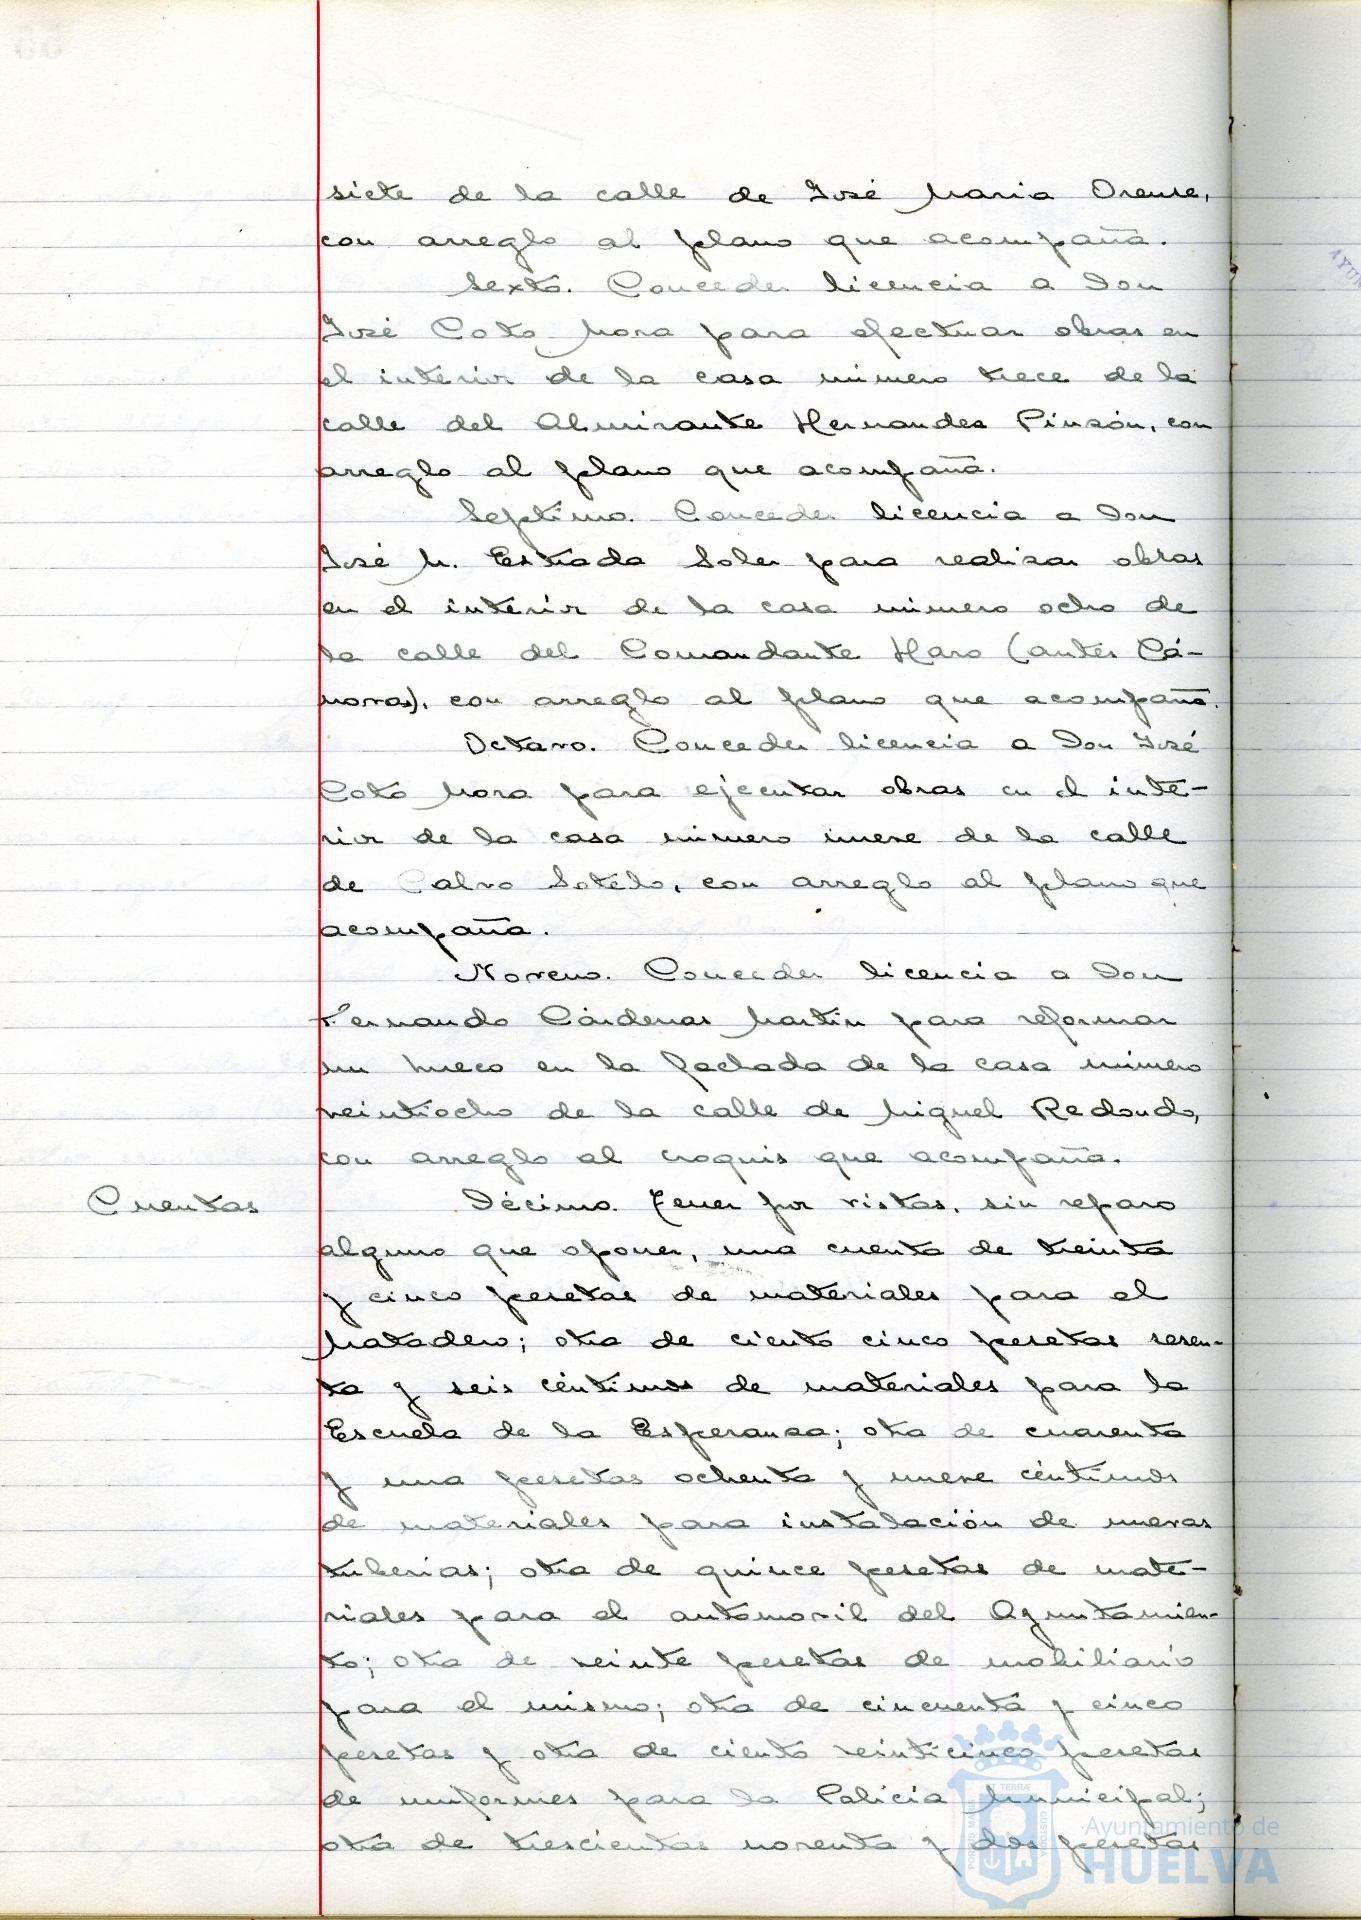 siete de la calle de José María Orense,
con arreglo al plano que acompaña.
Sexto. Conceder licencia a Don
José Coto Mora para efectuar obras en
el interior de la casa número trece de la
calle del Almirante Hernandez Pinzón, con
arreglo al plano que acompaña.
Septimo. Conceder licencia a Don
José M. Estrada Soler para realizar obras
en el interior de la casa número ocho de
la calle del Comandante Haro (antes Cá-
novas), con arreglo al plano que acompaña.
Octavo. Conceder licencia a Don José
Coto Mora para ejecutar obras en el inte-
rior de la casa número nueve de la calle
de Calvo Sotelo, con arreglo al plano que
acompaña.
Noveno. Conceder licencia a Don
Fernando Cárdenas Martín para reformar
un hueco en la fachada de la casa número
veintiocho de la calle de Miguel Redondo,
con arreglo al croquis que acompaña.
Cuentas
Décimo. Tener por vistas, sin reparo
alguno que oponer, una cuenta de treinta
y cinco pesetas de materiales para el
Matadero; otra de ciento cinco pesetas sesen-
ta y seis céntimos de materiales para la
Escuela de la Esperanza; otra de cuarenta
y una pesetas ochenta y nueve céntimos
de materiales para instalación de nuevas
tuberias; otra de quince pesetas de mate-
riales para el automovil del Ayuntamien-
to; otra de veinte pesetas de mobiliario
para el mismo; otra de cincuenta y cinco
pesetas y otra de ciento veinticinco pesetas
de uniformes para la Policia Municipal;
otra de trescientas noventa y dos pesetas
Ayuntamiento de
HUELVA